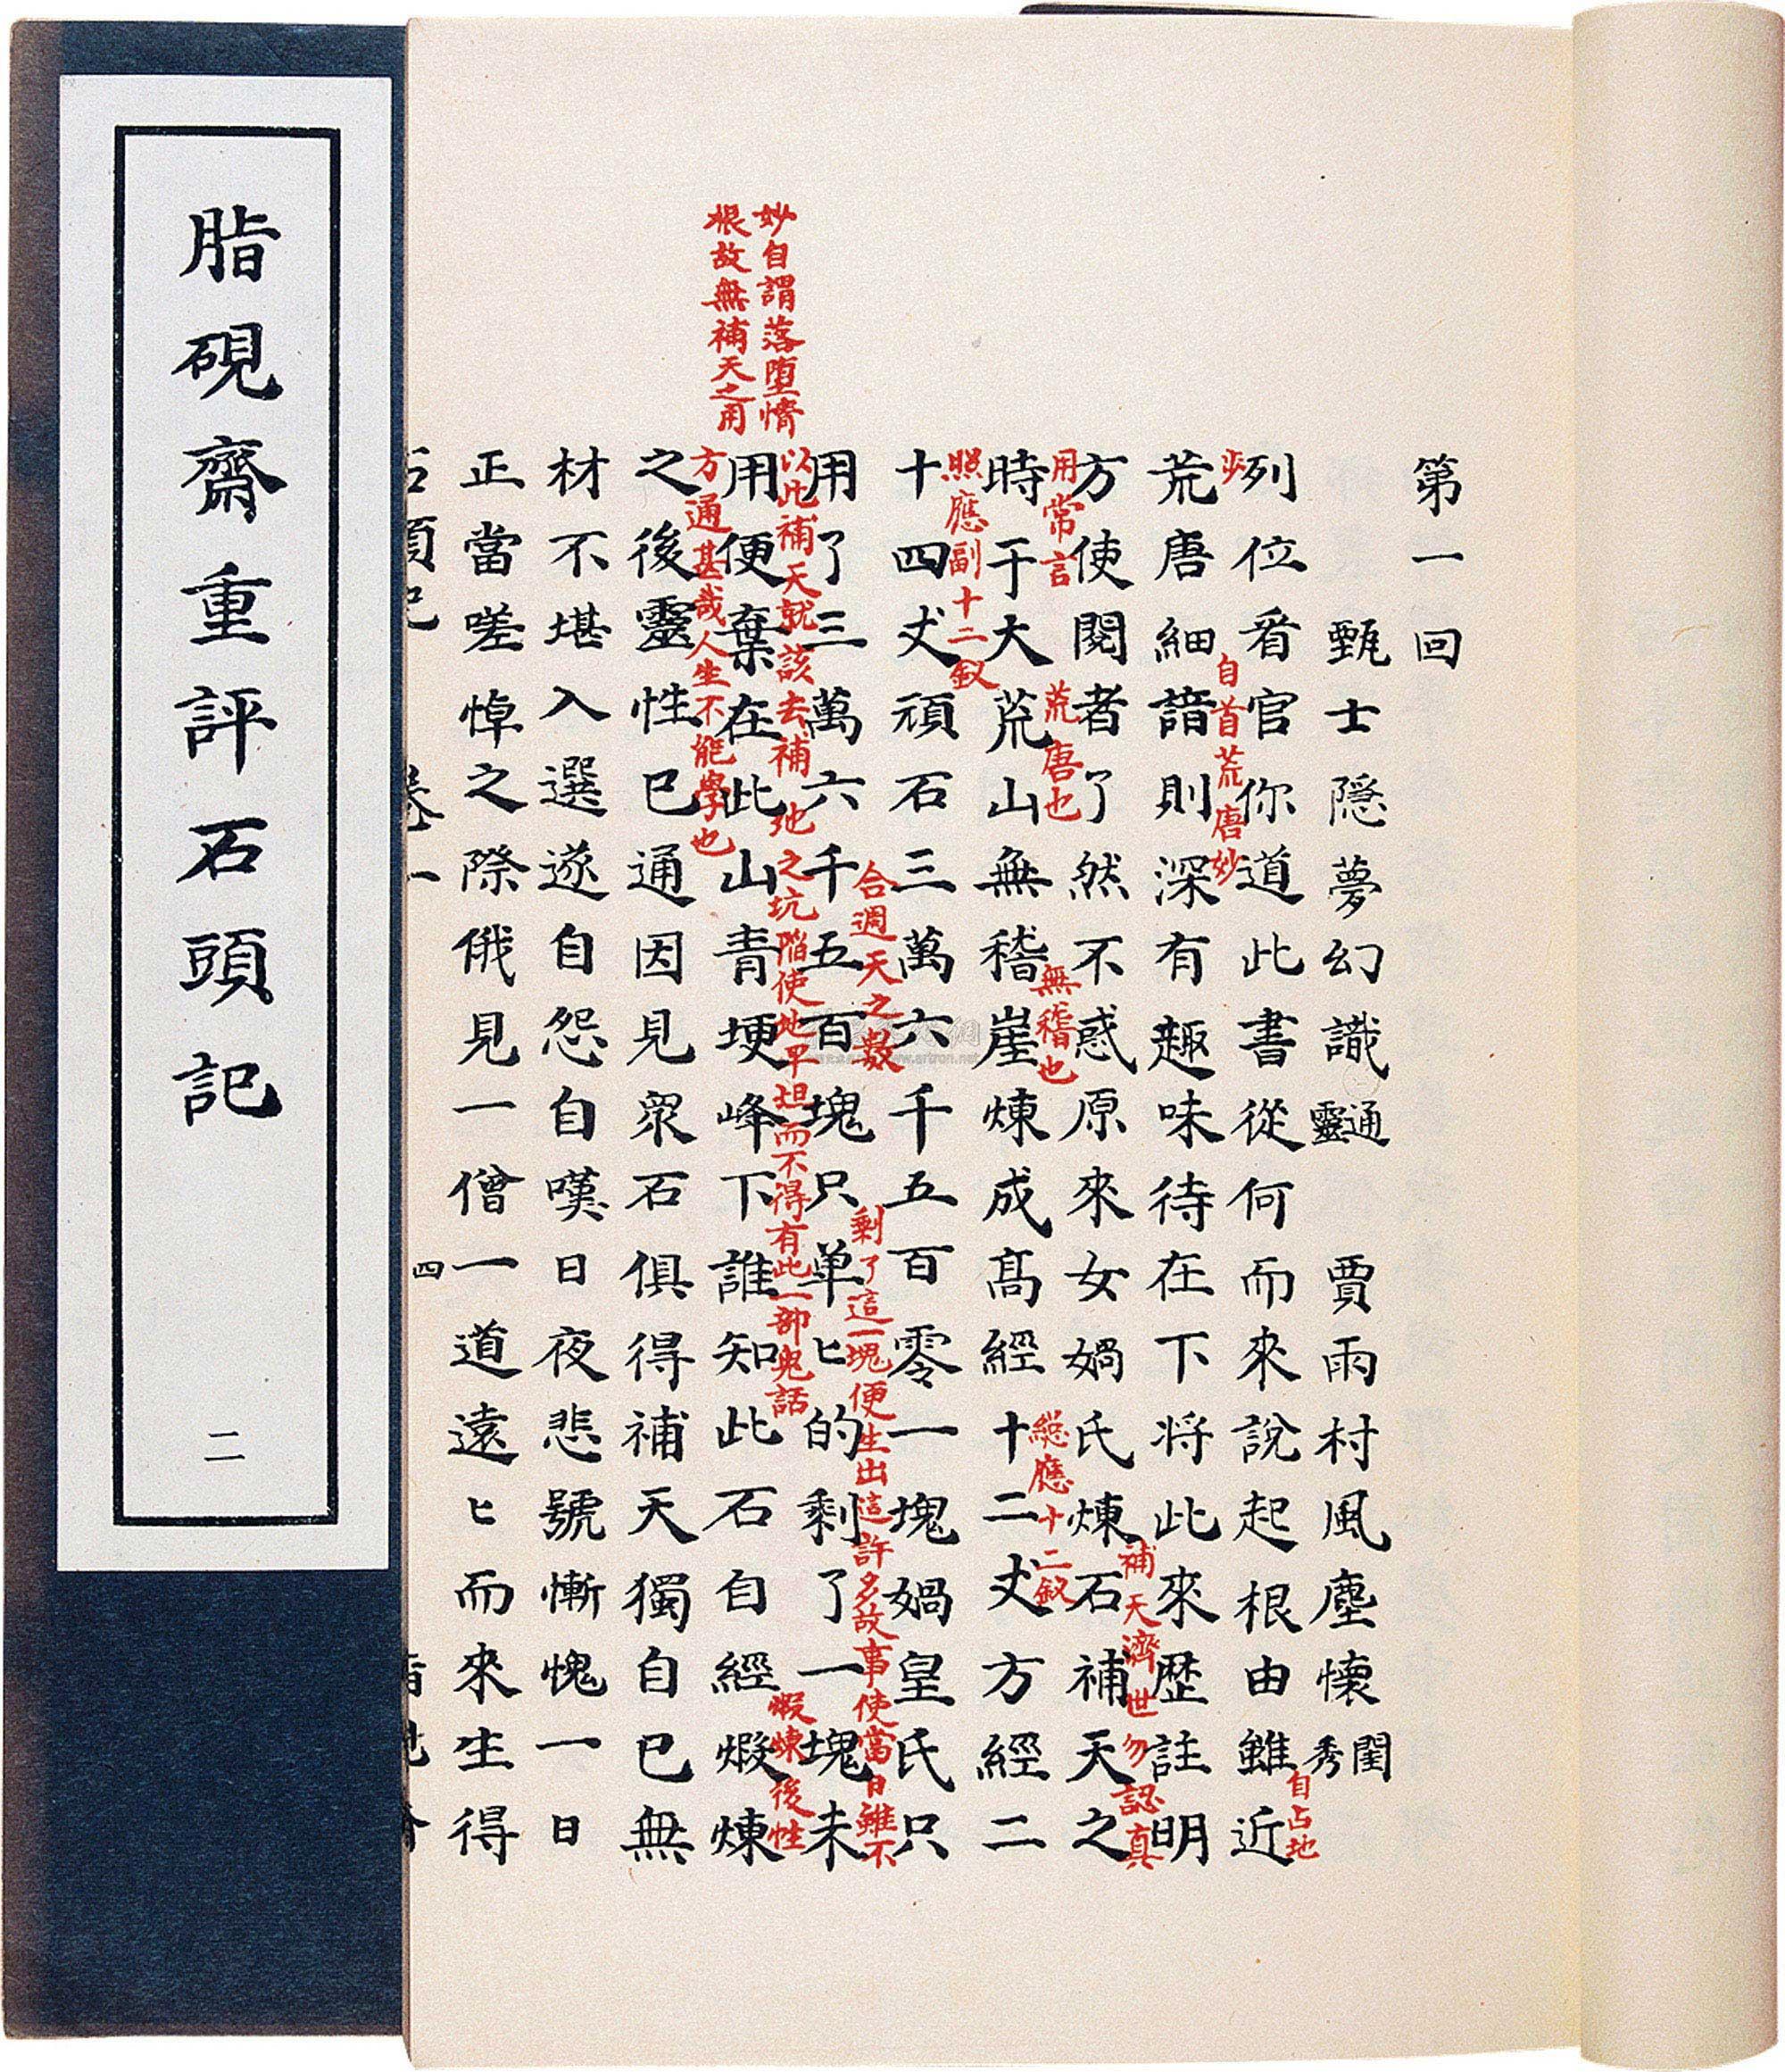 脂硯齋重評石頭記
二
第一回
甄士隱夢幻識通靈　賈雨村風塵懷閨秀
列位看官你道此書從何而來說起根由雖近
自占地
步
自首荒唐妙
荒唐細諳則深有趣味待在下将此來歷註明
方使閱者了然不惑原來女媧氏煉石補天之
補天濟世勿認真
用常言
時于大荒山無稽崖煉成高經十二丈方經二
荒唐也
無稽也
總應十二釵
十四丈頑石三萬六千五百零一塊媧皇氏只
照應副十二釵
用了三萬六千五百塊只单匕的剩了一塊未
合週天之數
剩了這一塊便生出這許多故事使當日雖不
以此補天就該去補地之坑陷使地平坦而不得有此一部鬼話
用便棄在此山青埂峰下誰知此石自經煅煉
妙自謂落堕情
根故無補天之用
煅煉後性
方通甚哉人生不能學也
之後靈性已通因見眾石俱得補天獨自已無
材不堪入選遂自怨自嘆日夜悲號慚愧一日
正當嗟悼之際俄見一僧一道遠匕而來生得
四